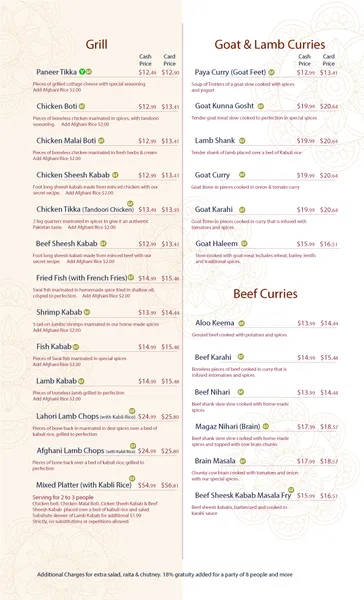 Grill
Cash Price
Card Price
Paneer Tikka V GF $12.49 $12.90
Pieces of grilled cottage cheese with special seasoning
Add Afghani Rice $2.00
Chicken Boti GF $12.99 $13.41
Pieces of boneless chicken marinated in spices, with tandoori
seasoning. Add Afghani Rice $2.00
Chicken Malai Boti GF $12.99 $13.41
Pieces of boneless chicken marinated in fresh herbs & cream
Add Afghani Rice $2.00
Chicken Sheesh Kabab GF $12.99 $13.41
Foot long sheesh kabab made from minced chicken with our
secret recipe. Add Afghani Rice $2.00
Chicken Tikka (Tandoori Chicken) GF $13.49 $13.93
2 leg quarters marinated in spices to give it an authentic
Pakistani taste. Add Afghani Rice $2.00
Beef Sheesh Kabab GF $12.99 $13.41
Foot long sheesh kabab made from minced beef with our
secret recipe. Add Afghani Rice $2.00
Fried Fish (with French Fries) GF $14.99 $15.48
Swai fish marinated in homemade spice fried in shallow oil,
crisped to perfection. Add Afghani Rice $2.00
Shrimp Kabab GF $13.99 $14.44
5 tail-on Jumbo shrimps marinated in our home-made spices
Add Afghani Rice $2.00
Fish Kabab GF $14.99 $15.48
Pieces of Swai fish marinated in special spices
Add Afghani Rice $2.00
Lamb Kabab GF $14.99 $15.48
Pieces of boneless lamb grilled to perfection
Add Afghani Rice $2.00
Lahori Lamb Chops (with Kabli Rice) GF $24.99 $25.80
Pieces of bone back marinated in desi spices over a bed of
kabuli rice, grilled to perfection
Afghani Lamb Chops (with Kabli Rice) GF $24.99 $25.80
Pieces of bone back over a bed of kabuli rice, grilled to
perfection
Mixed Platter (with Kabli Rice) GF $54.99 $56.81
Serving for 2 to 3 people
Chicken boti, Chicken Malai Boti, Cicken Sheesh Kabab & Beef
Sheesh Kabab placed over a bed of kabuli rice and salad.
Substitute skewer of Lamb Kabab for additional $1.99
Strictly, no substitutions or repetitions allowed
Goat & Lamb Curries
Cash Price
Card Price
Paya Curry (Goat Feet) GF $12.99 $13.41
Soup of Trotters of a goat slow cooked with spices
and yogurt
Goat Kunna Gosht GF $19.99 $20.64
Tender goat meat slow cooked to perfection in special spices
Lamb Shank GF $19.99 $20.64
Tender shank of lamb placed over a bed of Kabuli rice
Goat Curry GF $19.99 $20.64
Goat Bone-in pieces cooked in onion & tomato curry
Goat Karahi GF $19.99 $20.64
Goat Bone-in pieces cooked in curry that is infused with
tomatoes and spices.
Goat Haleem GF $15.99 $16.51
Stew cooked with goat meat includes wheat, barley, lentils
and traditional spices.
Beef Curries
Aloo Keema GF $13.99 $14.44
Ground beef cooked with potatoes and spices
Beef Karahi GF $14.99 $15.48
Boneless pieces of beef cooked in curry that is
infused intomatoes and spices
Beef Nihari GF $13.99 $14.44
Beef shank slow slow cooked with home-made
spices
Magaz Nihari (Brain) GF $17.99 $18.57
Beef shank slow slow cooked with home-made
spices and topped with cow brain chunks
Brain Masala GF $17.99 $18.57
Chunky cow brain cooked with tomatoes and onion
with our special spices.
Beef Sheesk Kabab Masala Fry GF $15.99 $16.51
Beef sheesh kababs, barbecued and cooked in
karahi sauce
Additional Charges for extra salad, raita & chutney. 18% gratuity added for a party of 8 people and more